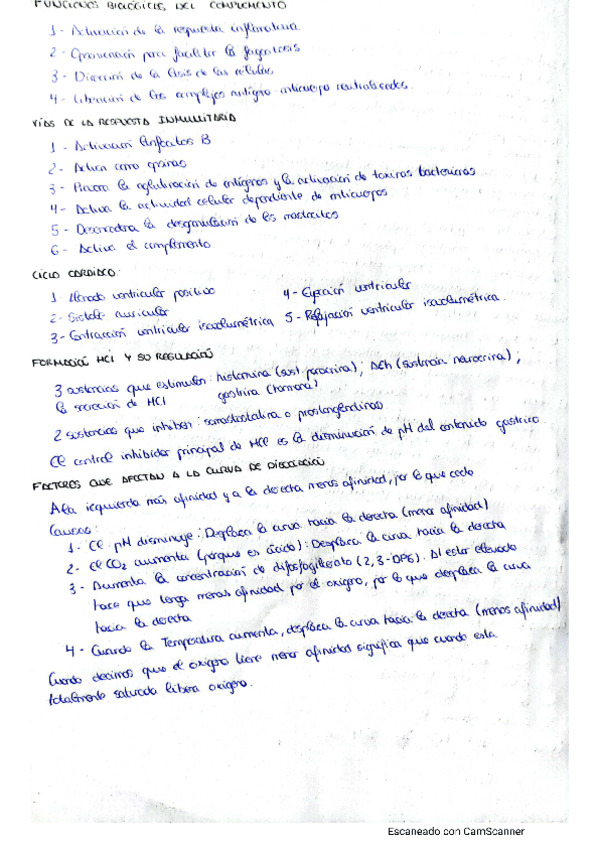 FUNCIONES BIOLÓGICAS DEL COMPLEMENTO
1- Activación de la respuesta inflamatoria.
2- Opsonización para facilitar la fagocitosis
3- Dirección de la lisis de las células
4- Liberación de los complejos antígeno-anticuerpo neutralizados.
VÍAS DE LA RESPUESTA INMUNITARIA
1- Activación linfocitos B
2- Actúan como opsoninas
3- la aglutinación de antígenos y la activación de toxinas bacterianas
4- Activa la actividad celular dependiente de anticuerpos
5- Desencadena la desgranulación de los mastocitos
6- Activa el complemento
CICLO CARDIACO:
1- Llenado ventricular positivo
2- Sístole auricular
3- Contracción ventricular isovolumétrica
4- Eyección ventricular
5- Relajación ventricular isovolumétrica.
FORMACIÓN HCl Y SU REGULACIÓN
3 sustancias que estimulan: histamina (sust. paracrina); ACh (sustancia neurocrina);
la secreción de HCl gastrina (hormona)
2 sustancias que inhiben: somatostatina o prostaglandinas
El control inhibidor principal de HCl es la disminución de pH del contenido gástrico.
FACTORES QUE AFECTAN A LA CURVA DE DISOCIACIÓN
A la izquierda más afinidad y a la derecha menos afinidad, por lo que cede
Causas:
1- El pH disminuye: Desplaza la curva hacia la derecha (menor afinidad)
2- el CO₂ aumenta (porque es ácido): Desplaza la curva hacia la derecha
3- Aumenta la concentración de difosfoglicerato (2,3-DPG). Al estar elevado
hace que tenga menos afinidad por el oxígeno, por lo que desplaza la curva
hacia la derecha
4- Cuando la Temperatura aumenta, desplaza la curva hacia la derecha (menos afinidad)
Cuando decimos que el oxígeno tiene menor afinidad significa que cuando está
totalmente saturada libera oxígeno.
Escaneado con CamScanner